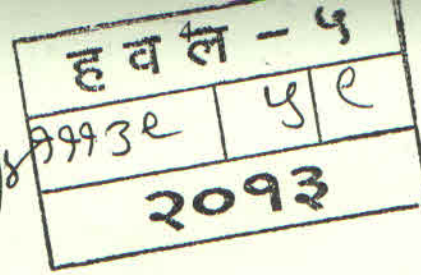 हवल - ५
११९३९ ५ ९
२०१३